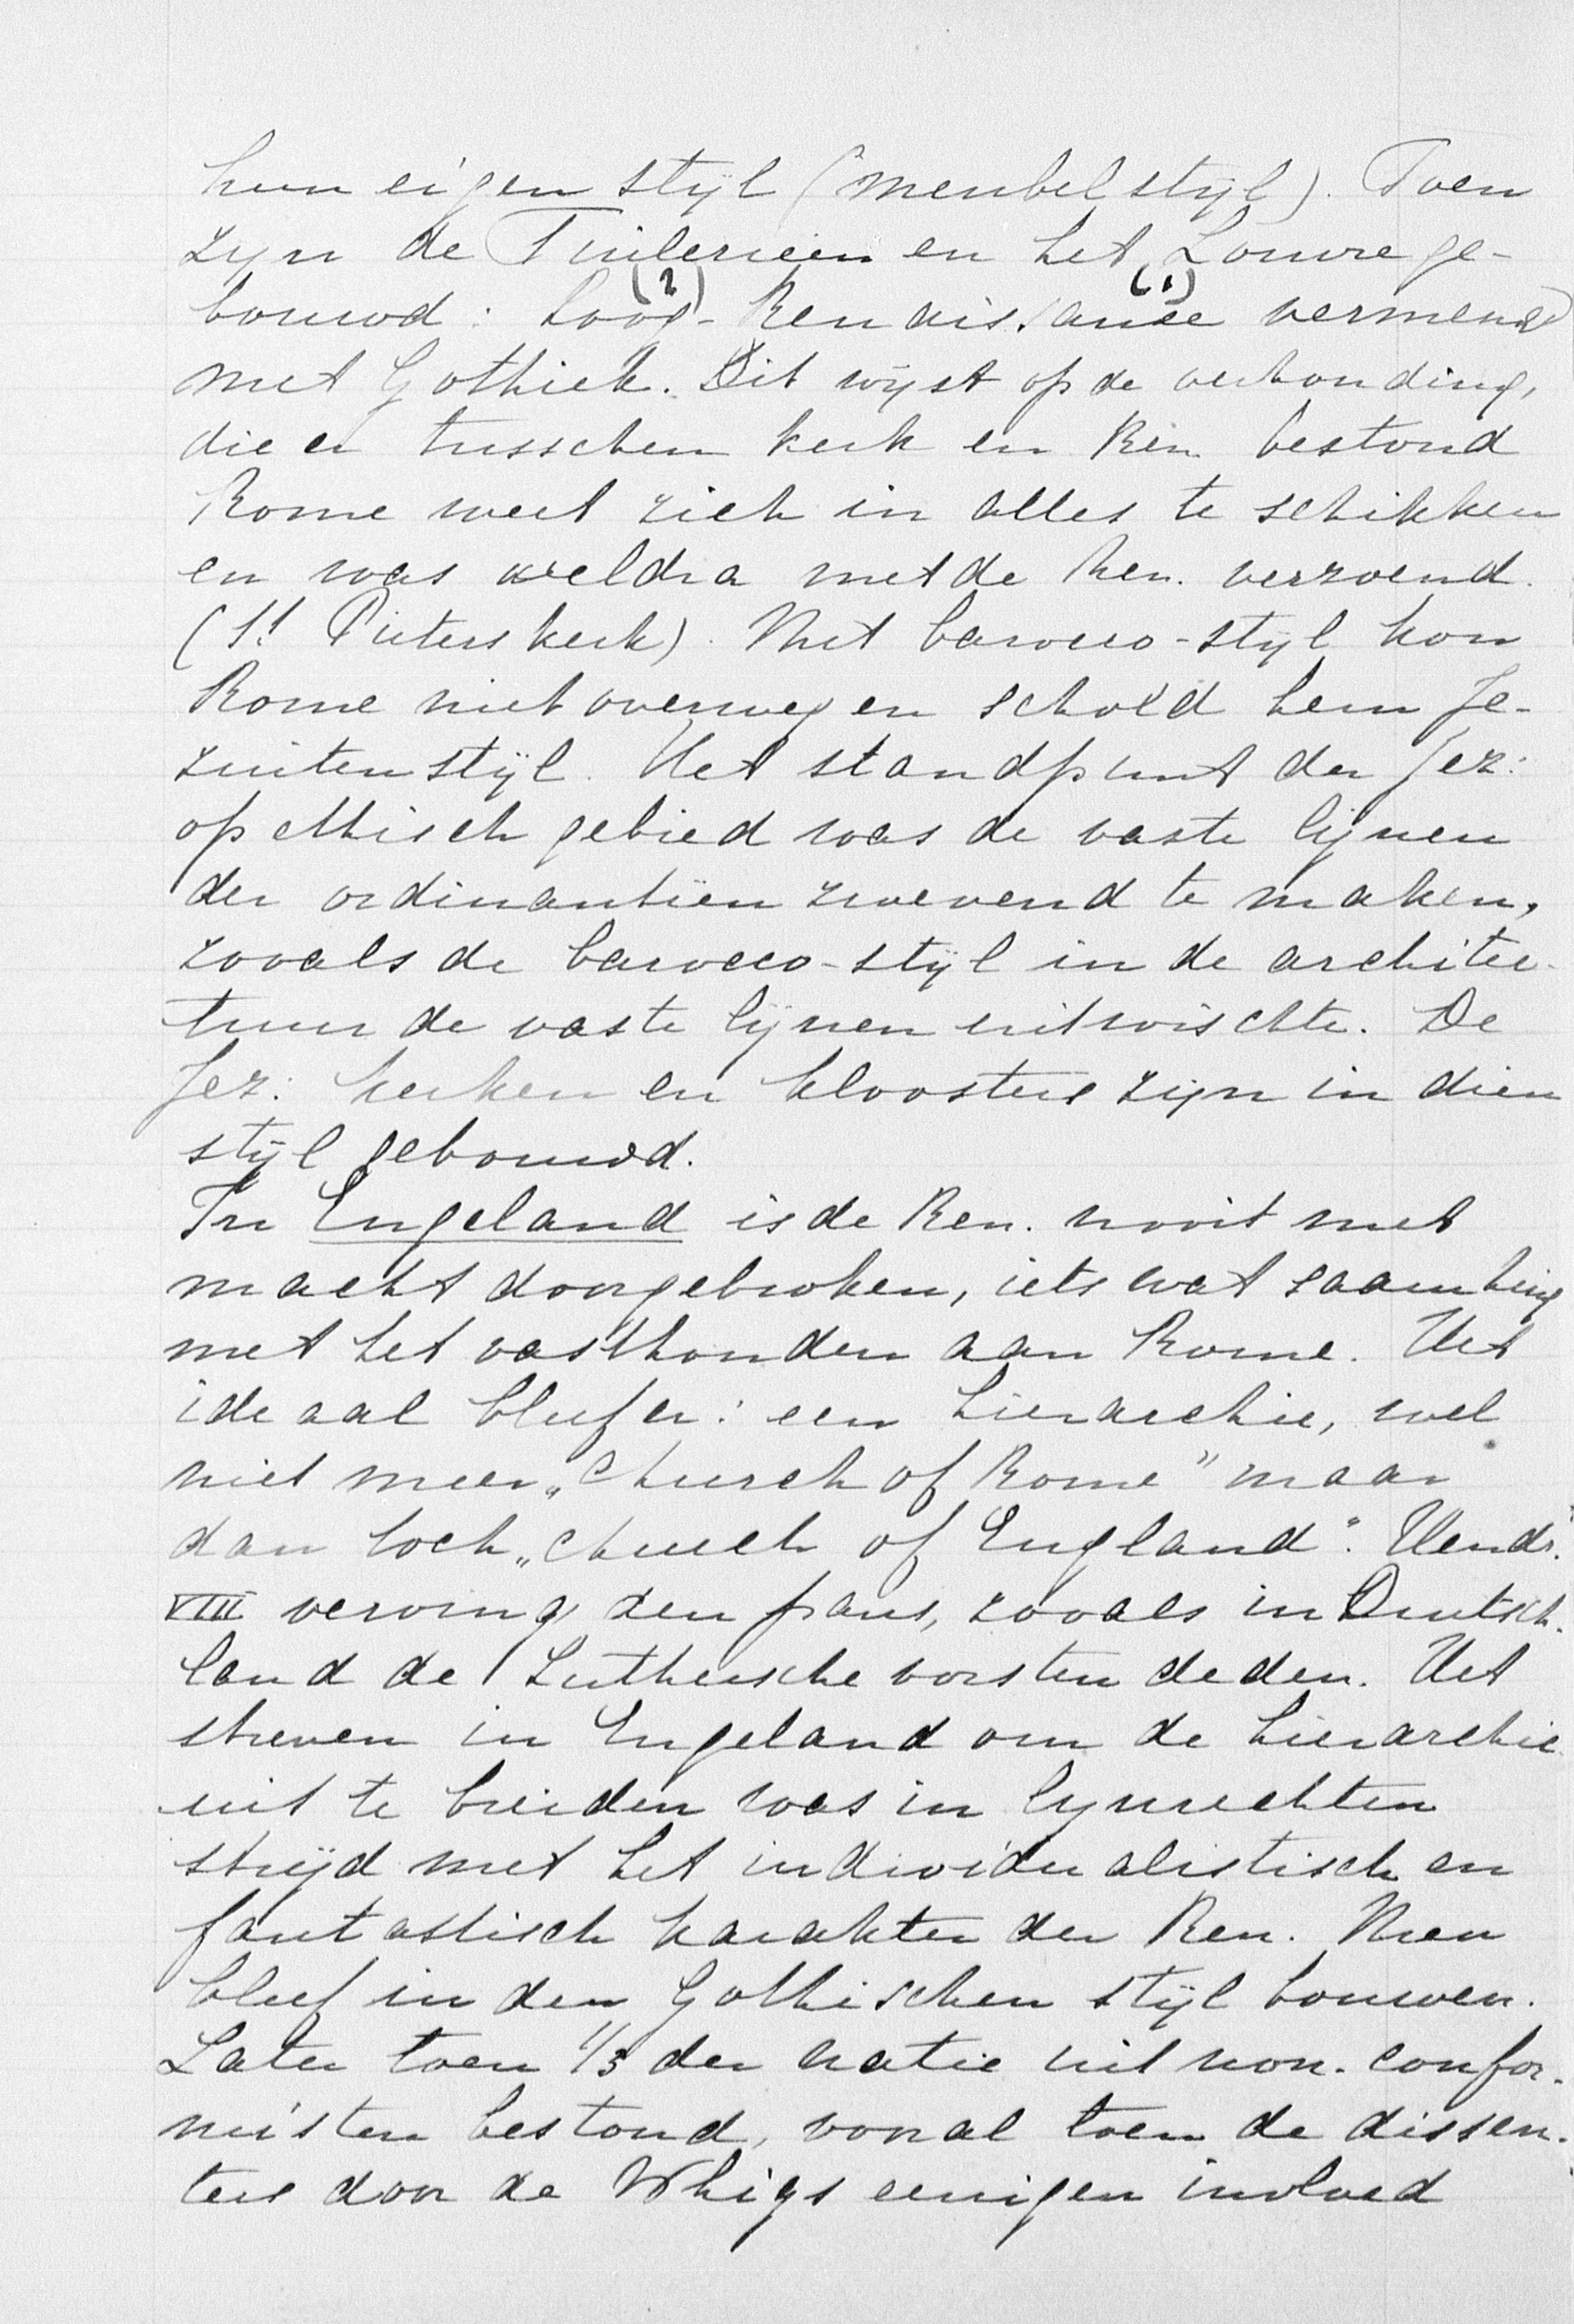 hun eigen stijl (meubelstijl). Toen
zijn de Tuilerieën en het Louvre ge-
(2) (1)
bouwd: hoog-Renaissance vermengd
met Gothiek. Dit wijst op de verhouding,
die er tusschen kerk en Ren. bestond
Rome weet zich in alles te schikken
en was weldra met de Ren. verzoend.
(St. Pieterskerk). Met barocco-stijl kon
Rome niet overweg en schold hem Je-
zuitenstijl. Het standpunt der Jez:
op ethisch gebied was de vaste lijnen
der ordinantiën zwevend te maken,
zooals de barocco-stijl in de architec-
tuur de vaste lijnen uitwischte. De
Jez: kerken en kloosters zijn in dien
stijl gebouwd.
In Engeland is de Ren. nooit met
macht doorgebroken, iets wat saamhing
met het vasthouden aan Rome. Het
ideaal bleef er: een hierarchie, wel
niet meer „Church of Rome” maar
dan toch „church of England”. Hendr.
VIII verving den paus, zooals in Duitsch-
land de Luthersche vorsten deden. Het
streven in Engeland om de hierarchie
uit te breiden was in lijnrechten
strijd met het individualistisch en
fantastisch karakter der Ren. Men
bleef in den Gothischen stijl bouwen.
Later toen 1/3 der natie uit non-confor-
misten bestond, vooral toen de dissen-
ters door de Whigs eenigen invloed